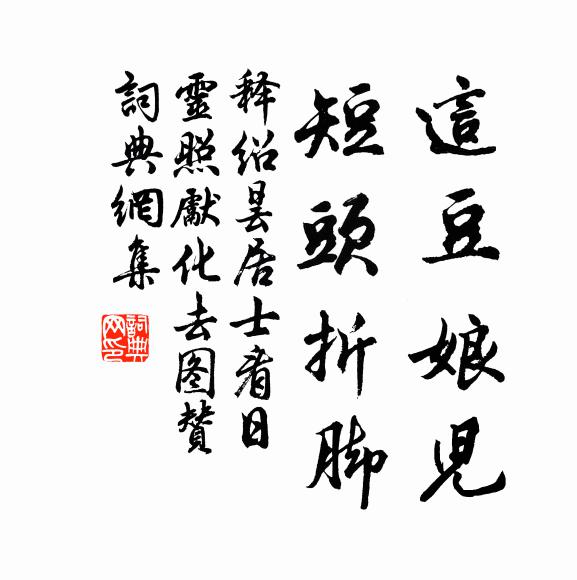 這豆娘兒
短頭折脚
释紹曇居士看日
靈照獻化去图贊
詞典網集
詞典网印